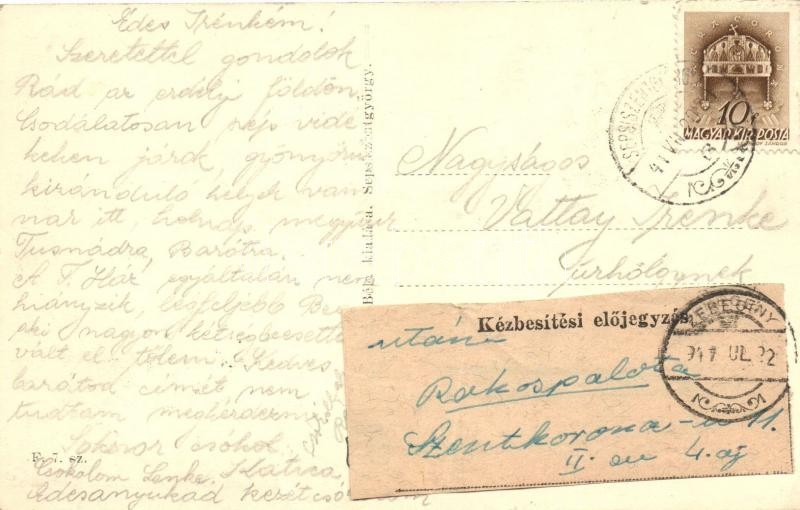 Édes Irénkém!
Szeretettel gondolok
Rád az erdélyi földön.
Csodálatosan szép vidé
keken járok, gyönyörű
kiránduló helyek van
nak itt, holnap megyünk
Tusnádra, Barótra.
A F. Ház egyáltalán nem
hiányzik, legfeljebb
nagyon kétségbeesetten
vált el tőlem. Kedves
barátod címét nem
tudtam
Sokszor csókol
Csókolom Lenke. Katica
Édesanyukád kezét
F. 7. sz.
kiadása. Sepsiszentgyörgy.
SEPSISZENTGYÖRGY
41 VII
10f
MAGYAR KIR. POSTA
Nagyságos
Vattay Irénke
úrhölgynek
Kézbesítési előjegyzés
utána
Rákospalota
Szentkorona-u 11.
II. em 4. aj
ZEBEGÉNY
941 JUL. 22